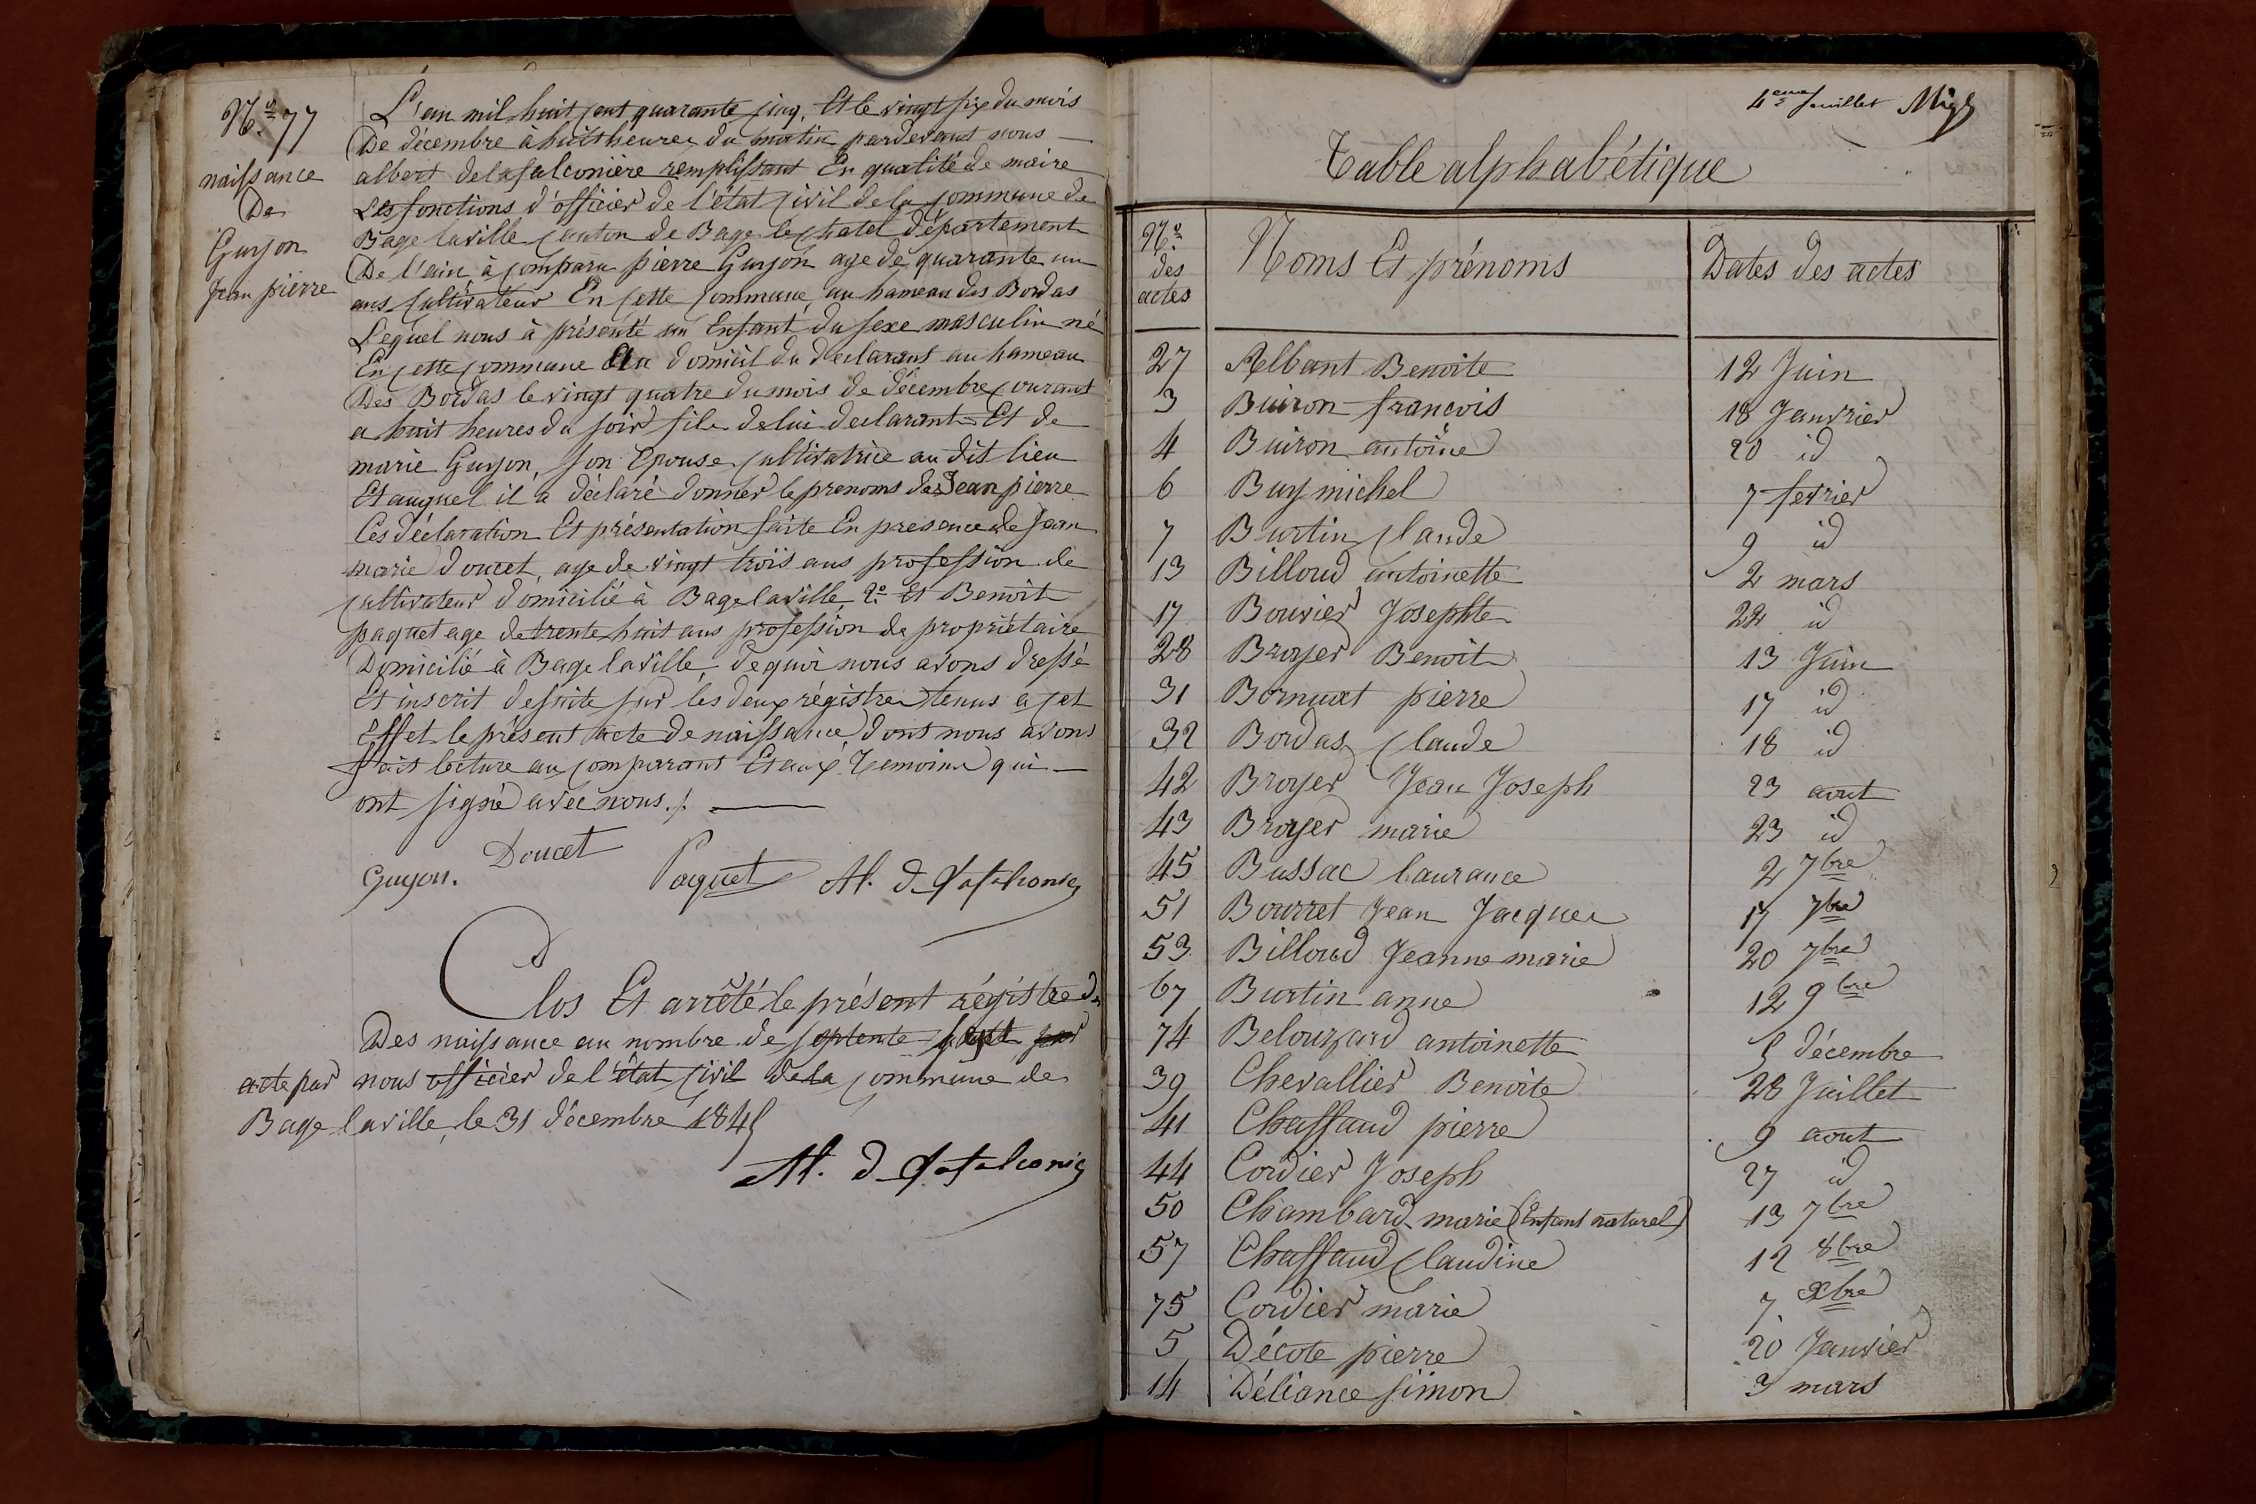 N.º 77
naissance
De
Guyon
Jean pierre
L'an mil huit cent quarante cinq, Et le vingt six du mois
De décembre à huit heures du matin pardevant nous
albert delafalconière remplissant En qualité de maire
Les fonctions d'officier de l'état Civil de la commune de
Bage laville canton de Bage le chatel département
De l'ain à comparu pierre Guyon age de quarante un
ans cultivateur En cette commune au hameau des Bordas
Lequel nous à présenté un Enfant du sexe masculin né
En cette commune Au domicil du declarant au hameau
Des Bordas le vingt quatre du mois de décembre courant
a huit heures du soir fils de lui declarant Et de
marie Guyon, son Epouse cultivatrice au dit lieu
Et auquel il a déclaré donner le prenoms de Jean pierre
Ces déclaration Et présentation faite En presence de Jean
marie doucet, age de vingt trois ans profession de
cultivateur domicilié à Bage laville, 2º Et Benoit
paquet age de trente huit ans profession de propriétaire
Domicilié à Bage laville, de quoi nous avons dressé
Et inscrit desuite sur les deux régistres tenus a cet
Effet le présent acte de naissance, dont nous avons
fait lecture au comparant Et aux Temoins qui
ont signé avec nous ./.
Guyon. Doucet Paquet Al. Delafalconie
Clos Et arrêté le présent régistre
Des naissance au nombre de septente sept
acte par nous officier de l'état Civil de la commune de
Bage laville, le 31 décembre 1845
Al. Delafalconie
4eme feuillet
Table alphabétique
N.º des actes Noms Et prénoms Dates des actes
27 Albant Benoite 12 Juin
3 Buiron francois 18 Janvrier
4 Buiron antoine 20 id
6 Buy michel 7 fevrier
7 Burtin Claude 9 id
13 Billoud antoinette 2 mars
17 Bouvier Josephte 22 id
28 Broyer Benoit 13 Juin
31 Bornuat pierre 17 id
32 Bordas Claude 18 id
42 Broyer Jean Joseph 23 aout
43 Broyer marie 23 id
45 Bussac laurance 2 7bre
51 Bourret Jean Jacques 17 7bre
53 Billoud Jeanne marie 20 7bre
67 Burtin anne 12 9bre
74 Belouzard antoinette 5 décembre
39 Chevallier Benoite 28 Juillet
41 Chaffaud pierre 9 aout
44 Cordier Joseph 27 id
50 Chambard marie (Enfant naturel) 13 7bre
57 Chaffaud Claudine 12 8bre
75 Cordier marie 7 xbre
5 Décote pierre 20 Janvier
14 Déliance simon 3 mars